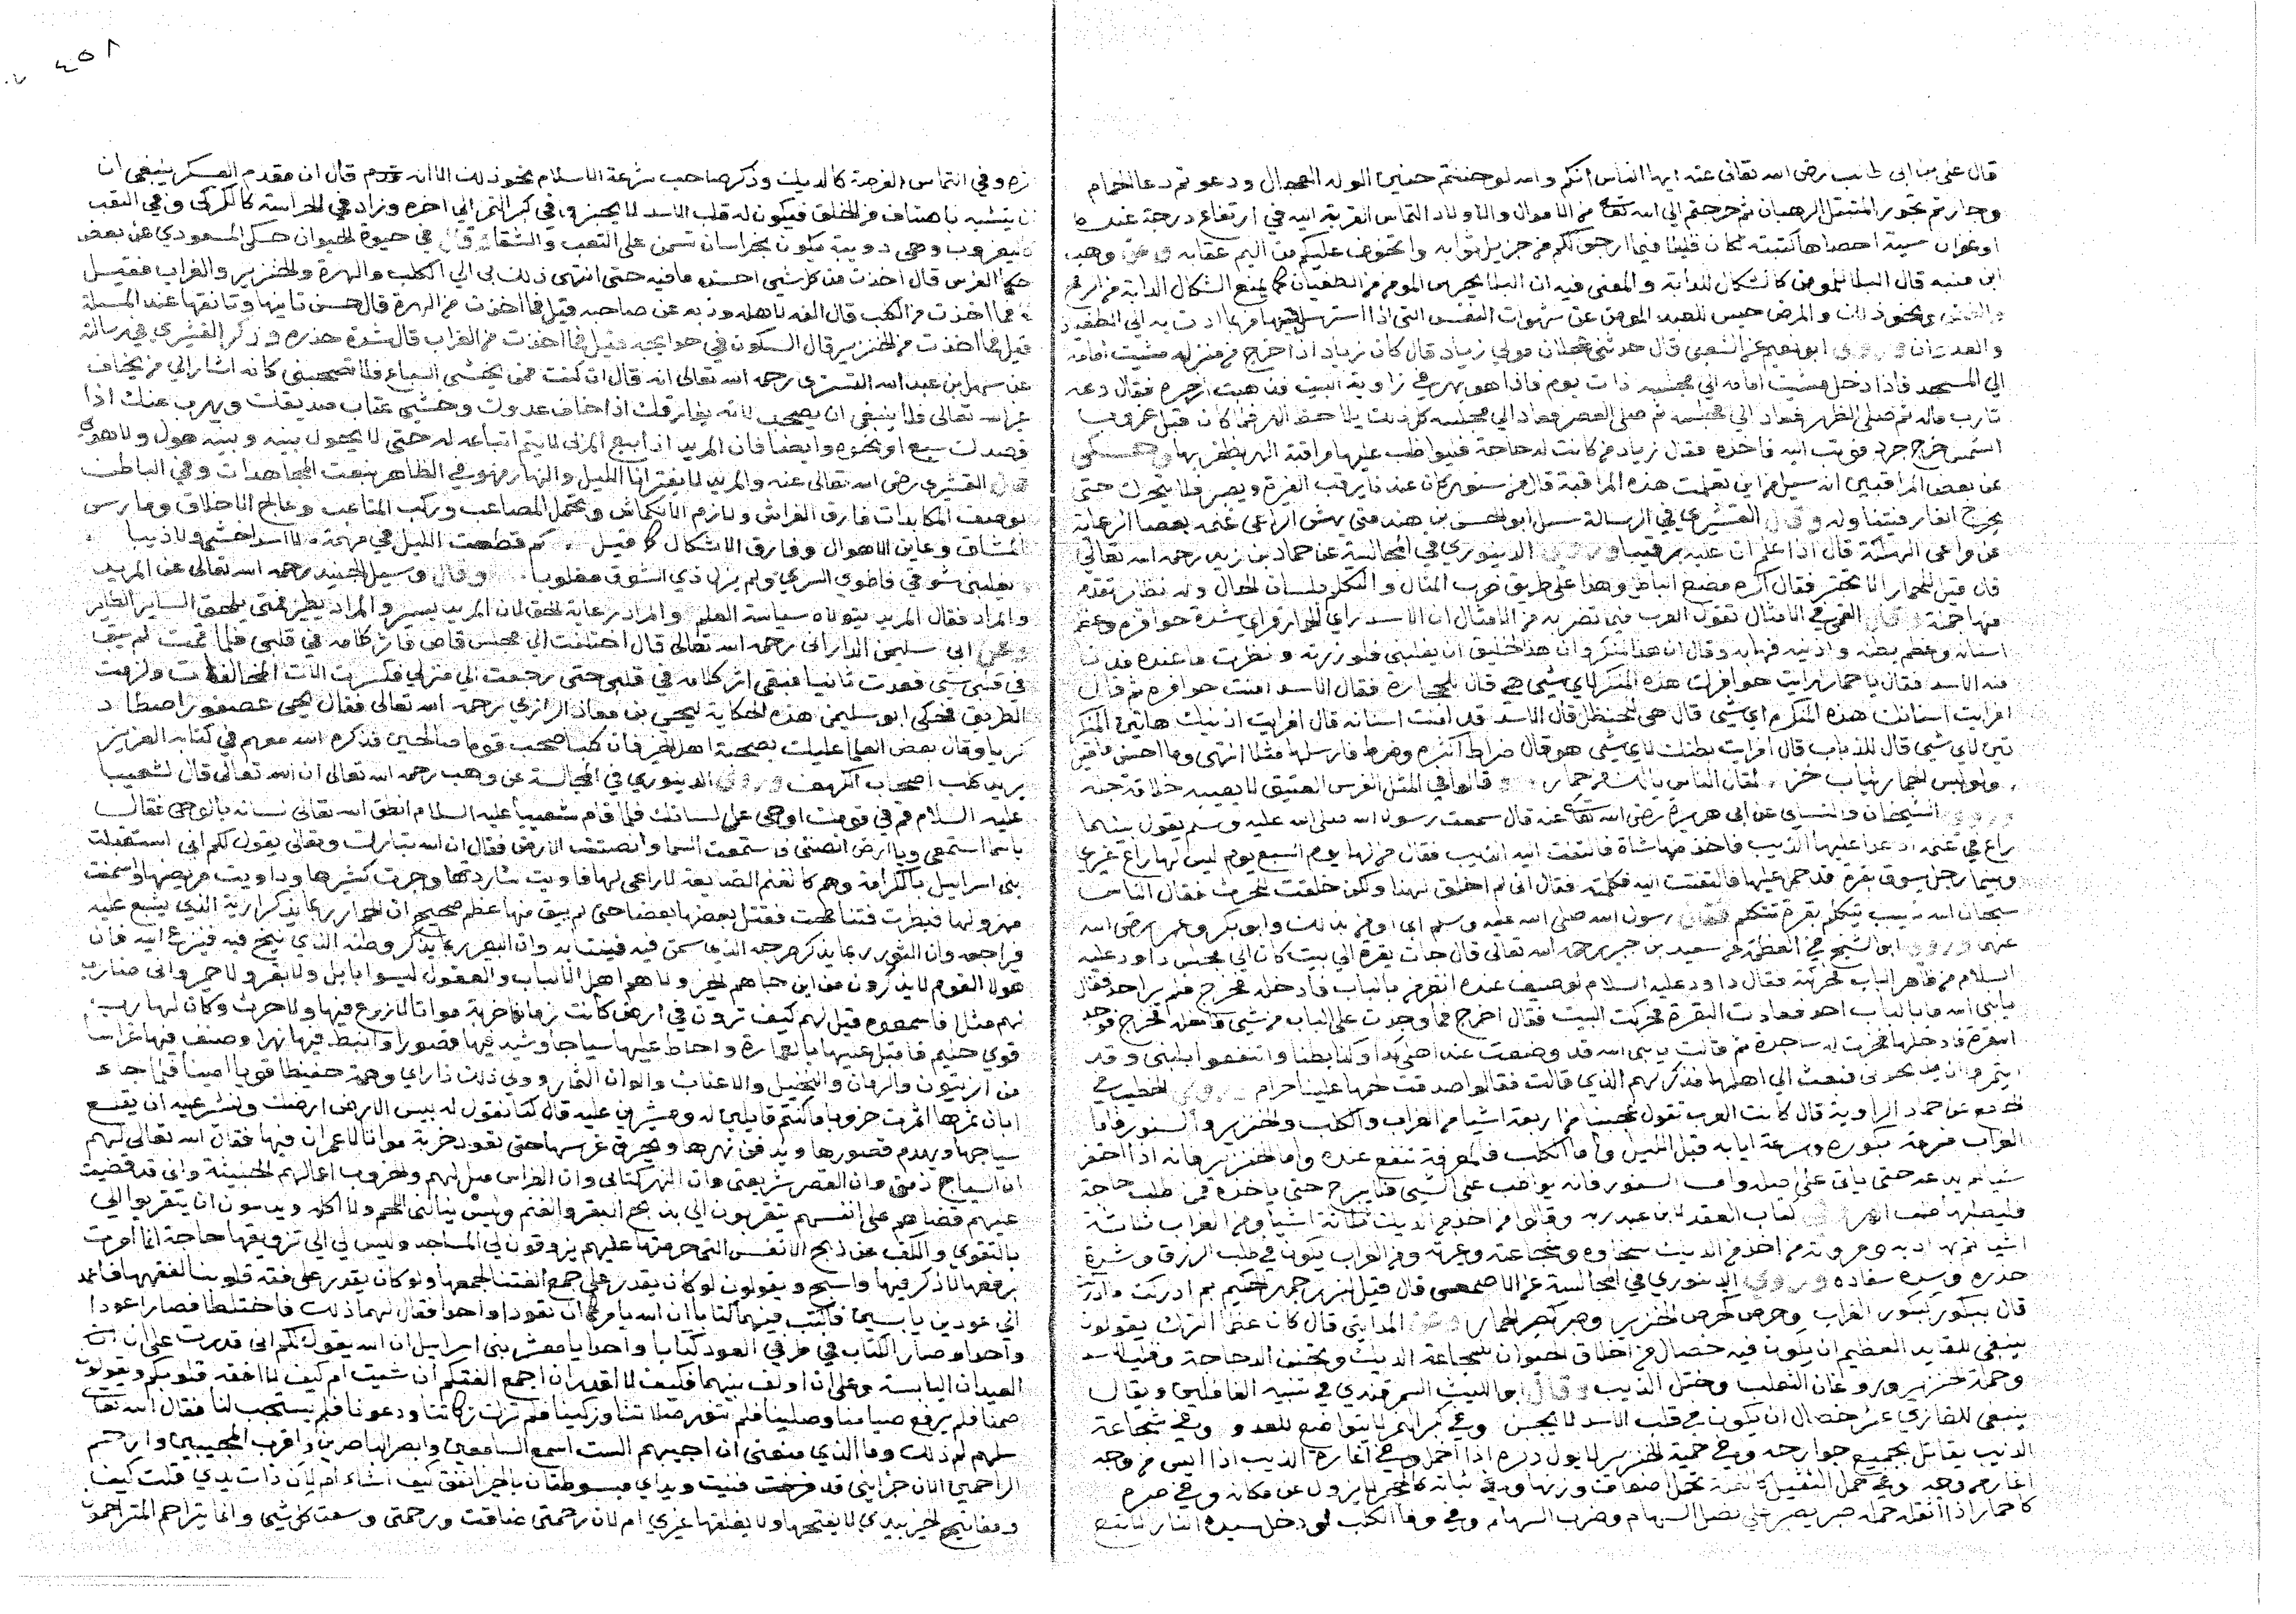 قال علي بن ابي طالب رضي الله تعالى عنه ايها الناس انكم والله لو حننتم حنين الوله العجال ودعوتم دعا الحمام
وجارتم جور المتبتل الرهبان ثم خرجتم الى الله تعالى من الاموال والاولاد التماس القربة اليه في ارتفاع درجة عنده
او غفران سية احصاها كتبته لكان قليلا فيما ارجو لكم من جزيل ثوابه واتخوف عليكم من اليم عقابه وعن وهب
ابن منبه قال البلا للمومن كالشكال للدابة والمعنى فيه ان البلا يحبس المومن من الطغيان كما يمنع الشكال الدابة من
ونحو ذلك والمرض حبس للعبد المومن عن شهوات النفس التي اذا استرسل فيها
والعدوان وروى ابو نعيم عن الشعبي قال حدثني عجلان مولى زياد قال كان زياد اذا خرج من منزله مشيت امامه
الى المسجد فاذا دخل مشيت امامه الى مجلسه ذات يوم فاذا هو بهر في زاوية البيت فذهبت ازجره فقال دعه
يارب ماله ثم صلى الظهر فعاد الى مجلسه ثم صلى العصر فعاد الى مجلسه كل ذلك يلاحظ الهر فلما كان قبل غروب
الشمس خرج جرذ فوثب اليه فاخذه فقال زياد من كانت له حاجة فليواظب عليها مراقبة الهر يظفر بها وحكي
عن بعض المراقبين انه سيل من اين تعلمت هذه المراقبة قال من سنور كان عندنا يرقب الفرة ويصبر فلا يتحرك حتى
يخرج الفار فيتناوله وقال القشيري في الرسالة سيل ابو الحسن بن هند متى يهش الراعي غنمه بعصا الرعاية
عن مراعي الهلكة قال اذا علم ان عليه رقيبا وروى الدينوري في المجالسة عن حماد بن زيد رحمه الله تعالى
قال قيل للحمار الا تجتر فقال اكره مضغ الباطل وهذا على طريق ضرب المثال والتكلم بلسان الحال وله نظاير تقدم
منها جملة وقال القمي في الامثال تقول العرب فيما تضربه من الامثال ان الاسد راى الحمار فراى شدة حوافره وعظم
اسنانه وعظم بطنه واذنيه فهابه وقال ان هذا لمنكر وان هذا خليق ان يغلبني فلو زرته ونظرت ما عنده فدنا
منه الاسد فقال يا حمار ارايت حوافرك هذه المنكرة لاي شي هي قال للحجارة فقال الاسد امنت حوافره ثم قال
افرايت اسنانك هذه المنكرة لاي شي قال هي للحنظل قال الاسد قد امنت اسنانه قال افرايت اذنيك هاتين المنكر
تين لاي شي قال للذباب قال افرايت بطنك لاي شي هو قال ضراط اكثره وضرط فارسلها مثلا انتهى وما احسن ما قيل
ولو لبس الحمار ثياب خز لقال الناس يا لك من حمار وقالوا في المثل الفرس العتيق لا يعيبه خلاقة جله
وروى الشيخان والنساي عن ابي هريرة رضي الله تعالى عنه قال سمعت رسول الله صلى الله عليه وسلم يقول بينما
راع في غنمه اذ عدا عليها الذيب فاخذ منها شاة فالتفت اليه الذيب فقال من لها يوم السبع يوم ليس لها راع غيري
وبينما رجل يسوق بقرة قد حمل عليها فالتفتت اليه فكلمته فقال اني لم اخلق لهذا ولكن خلقت للحرث فقال الناس
سبحان الله ذيب يتكلم بقرة تتكلم فقال رسول الله صلى الله عليه وسلم اني اومن بذلك وابو بكر وعمر رضي الله
عنهما وروى ابو الشيخ في العظمة عن سعيد بن جبير رحمه الله تعالى قال جات بقرة الى بيت كان الى مجلس داود عليه
السلام من ظاهر الباب فقال داود عليه السلام لوصيف عنده انظر من بالباب فادخله فخرج فلم ير احدا فقال
يا نبي الله ما بالباب احد فعادت البقرة فحركت البيت فقال اخرج فما وجدت على الباب من شي فادخله فخرج فوجد
البقرة فادخلها فخرت له ساجدة ثم قالت يا نبي الله قد وضعت عند اهلي كذا وكذا بطنا وانتفعوا بلبني وقد
ارادوا ان يذبحوني فبعث الى اهلها فذكر لهم الذي قالت فقالوا صدقت لحمها علينا حرام وروى الخطيب في
الجامع عن حماد الراوية قال كانت العرب تقول تحببنا من اربعة اشيا من الغراب والكلب والخنزير والسنور فاما
الغراب فسرعة بكوره وسرعة ايابه قبل الليل واما الكلب فالمعرفة تنفع عنده واما الخنزير فانه اذا احتفر
شيا لم يدعه حتى ياتي على اصله واما السنور فانه يواظب على الشي فلا يبرح حتى ياخذه فمن طلب حاجة
فليطلبها طلب الهر وفي كتاب العقد لابن عبد ربه وقالوا من اخذ من الديك ثلاثة اشيا ومن الغراب ثلاثة
اشيا تم بها ادبه ومروته من اخذ من الديك سخاوه وشجاعته وغيرته ومن الغراب بكوره في طلب الرزق وشدة
حذره وسترة سفاده وروى الدينوري في المجالسة عن الاصمعي قال قيل لبزرجمهر الحكيم بم ادركت ما ادركت
قال ببكور كبكور الغراب وحرص كحرص الخنزير وصبر كصبر الحمار وعن المدايني قال كان عظما الترك يقولون
ينبغي للقايد العظيم ان يكون فيه خصال من اخلاق الحيوان شجاعة الديك وتحنن الدجاجة وقلب الاسد
وحملة الخنزير وروغان الثعلب وختل الذيب وقال ابو الليث السمرقندي في تنبيه الغافلين ويقال
ينبغي للغازي عشر خصال ان يكون في قلب الاسد لا يجبن وفي كبر النمر لا يتواضع للعدو وفي شجاعة
الدب يقاتل بجميع جوارحه وفي حمية الخنزير لا يولي دبره اذا حمل وفي اغارة الذيب اذا ايس من وجه
اغار من وجه وفي حمل الثقيل كالنملة تحمل اضعاف وزنها وفي ثباته كالحجر لا يزول عن مكانه وفي صبره
كالحمار اذا اثقله حمله صبر يصبر على نصل السهام وضرب السهام وفي وفا الكلب لو دخل سيده النار لاتبع
ثره وفي التماس الفرصة كالديك وذكر صاحب شرعة الاسلام نحو ذلك الا انه قدم قال ان مقدم العسكر ينبغي ان
ان يتشبه باصناف من الخلق فيكون له قلب الاسد لا يجبن وفي كبر النمر الى اخره وزاد في الحراسة كالكركي وفي التعب
كاليعروب وهي دويبة تكون بخراسان تسمن على التعب والشقا وقال في حيوة الحيوان حكى المسعودي عن بعض
حكما الفرس قال اخذت من كل شي احسن ما فيه حتى انتهى ذلك بي الى الكلب والهرة والخنزير والغراب فقيل
له فما اخذت من الكلب قال الفه لاهله وذبه عن صاحبه قيل فما اخذت من الهرة قال حسن تانيها وتملقها عند المسلة
قيل فما اخذت من الخنزير قال السكون في حوايجه قيل فما اخذت من الغراب قال شدة حذره وذكر القشيري في رسالته
عن سهل بن عبد الله التستري رحمه الله تعالى انه قال ان كنت ممن يخشى السباع فلا تصحبني كانه اشار الى من يخاف
غير الله تعالى فلا ينبغي ان يصحب لانه يفارقك اذا خاف عدوك وخشي عتاب صديقك ويهرب عنك اذا
قصدك سبع او نحوه وايضا فان المريد اذا تبع المربي لا يتم اتباعه له حتى لا يحول بينه وبينه هول ولا هوى
قال القشيري رضي الله تعالى عنه والمريد لا يفتر انا الليل والنهار فهو في الظاهر بنعت المجاهدات وفي الباطن
بوصف المكابدات فارق الفراش ولازم الانكماش وتحمل المصاعب وركب المتاعب وعالج الاخلاق ومارس
المشاق وعاين الاهوال وفارق الاشكال كما قيل ثم قطعت الليل في مهمه لا اسدا اخشى ولا ذيبا
يغلبني شوقي فاطوي السرى ولم يزل ذو الشوق مغلوبا وقال وسيل الجنيد رحمه الله تعالى عن المريد
والمراد فقال المريد يتولاه سياسة العلم والمراد رعاية الحق لان المريد يسير والمراد يطير فمتى يلحق الساير الطاير
وعن ابي سليمن الداراني رحمه الله تعالى قال اختلفت الى مجلس قاص فاثر كلامه في قلبي فلما قمت لم يبق
في قلبي شي فعدت ثانيا فبقي اثر كلامه في قلبي حتى رجعت الى منزلي فكسرت الات المخالفات ولزمت
الطريق فحكى ابو سليمن هذه الحكاية ليحيى بن معاذ الرازي رحمه الله تعالى فقال يحيى عصفور اصطاد
كركيا وقال بعض العلما عليك بصحبة اهل الخير فان كلبا صحب قوما صالحين فذكره الله معهم في كتابه العزيز
يريد كلب اصحاب الكهف وروى الدينوري في المجالسة عن وهب رحمه الله تعالى ان الله تعالى قال لشعيبا
عليه السلام قم في قومك اوحي على لسانك فلما قام شعيبا عليه السلام انطق الله تعالى لسانه بالوحي فقال
يا سما استمعي ويا ارض انصتي فاستمعت السما وانصتت الارض فقال ان الله تبارك وتعالى يقول لكم اني استقبلت
بني اسراييل بالكرامة وهم كالغنم الضايعة لا راعي لها فاويت شاردتها وجبرت كسيرها وداويت مريضها واسمنت
مهزولها فبطرت فتناطحت فقتل بعضها بعضا حتى لم يبق منها عظم صحيح ان الحمار ربما يذكر اريه الذي يشبع عليه
فيراجعه وان الثور ربما يذكر مرجه الذي سمن فيه فينتابه وان البعير ربما يذكر وطنه الذي ينتج فيه فينزع اليه فان
هولا القوم لا يذكرون من اين جاهم الخير ولا هو اهل الالباب والعقول ليسوا بابل ولا بقر ولا حمير واني ضارب
لهم مثلا فاسمعوه قيل لهم كيف ترون في ارض كانت زمانا خربة مواتا لا زرع فيها ولا حرث وكان لها رب
قوي حليم فاقبل عليها بالعمارة واحاط عليها سياجا وشيد فيها قصورا وانبط فيها نهرا وصنف فيها غراسا
من الزيتون والرمان والنخيل والاعناب والوان الثمار وولى ذلك ذا راي وهمة حفيظا قويا امينا فلما جاء
ابان ثمرها اثمرت خروبا ما كنتم قايلين له ومشيرين عليه قال كنا نقول له بيس الارض ارضك ونشير عليه ان يقلع
سياجها ويهدم قصورها ويدفن نهرها ويحرق غرسها حتى تعود خربة مواتا لا عمران فيها فقال الله تعالى لهم
ان السياج ذمتي وان القصر شريعتي وان النهر كتابي وان الغراس مثل لهم والخروب اعمالهم الخبيثة واني قد قضيت
عليهم قضاهم على انفسهم يتقربون الي بذبح البقر والغنم وليس ينالني اللحم ولا اكله ويدعون ان يتقربوا الي
بالتقوى والكف عن ذبح الانفس التي حرمتها عليهم يزوقون لي المساجد وليس لي الى تزويقها حاجة انما امرت
برفعها لاذكر فيها واسبح ويقولون لو كان يقدر على جمع الفتنا لجمعها ولو كان يقدر على فقه قلوبنا لفقهها فاعمد
الى عودين يابسين فاكتب فيهما كتابا ان الله يامركما ان تعودا واحدا فقال لهما ذلك فاختلطا فصارا عودا
واحدا وصار الكتاب في طرفي العود كتابا واحدا يا معشر بني اسراييل ان الله يقول لكم اني قدرت على ان
العيدان اليابسة وعلى ان اولف بينهما فكيف لا اقدر ان اجمع الفتكم ان شيت ام كيف لا افقه قلوبكم ويقولون
صمنا فلم يرفع صيامنا وصلينا فلم تنور صلاتنا وزكينا فلم تزك زكاتنا ودعونا فلم يستجب لنا فقال الله تعالى
سلهم لم ذلك وما الذي منعني ان اجيبهم الست اسمع السامعين وابصر الناصرين واقرب المجيبين وارحم
الراحمين الان خزايني قد فرغت فنيت ويداي مبسوطتان بالخير انفق كيف اشاء ام لان ذات يدي قلت كيف
ومفاتيح الخير بيدي لا يفتحها ولا يغلقها غيري ام لان رحمتي ضاقت ورحمتي وسعت كل شي وانما يتراحم المتراحمون